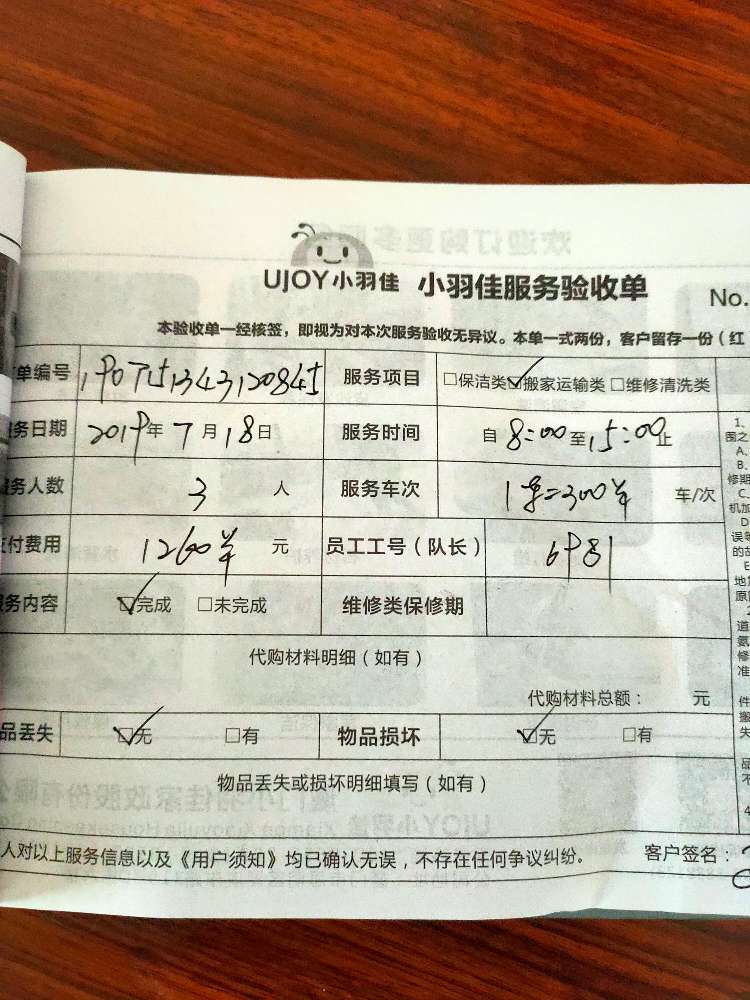 UJOY小羽佳 小羽佳服务验收单
No.
本验收单一经核签，即视为对本次服务验收无异议。本单一式两份，客户留存一份（红
单编号 1907151343120845 服务项目 □保洁类☑搬家运输类□维修清洗类
务日期 2019年7月18日 服务时间 自8:00至15:00止
服务人数 3人 服务车次 1车=300羊 车/次
付费用 1260羊 元 员工工号（队长） 6981
务内容 ☑完成 □未完成 维修类保修期
代购材料明细（如有）
代购材料总额： 元
品丢失 ☑无 □有 物品损坏 ☑无 □有
物品丢失或损坏明细填写（如有）
人对以上服务信息以及《用户须知》均已确认无误，不存在任何争议纠纷。 客户签名：